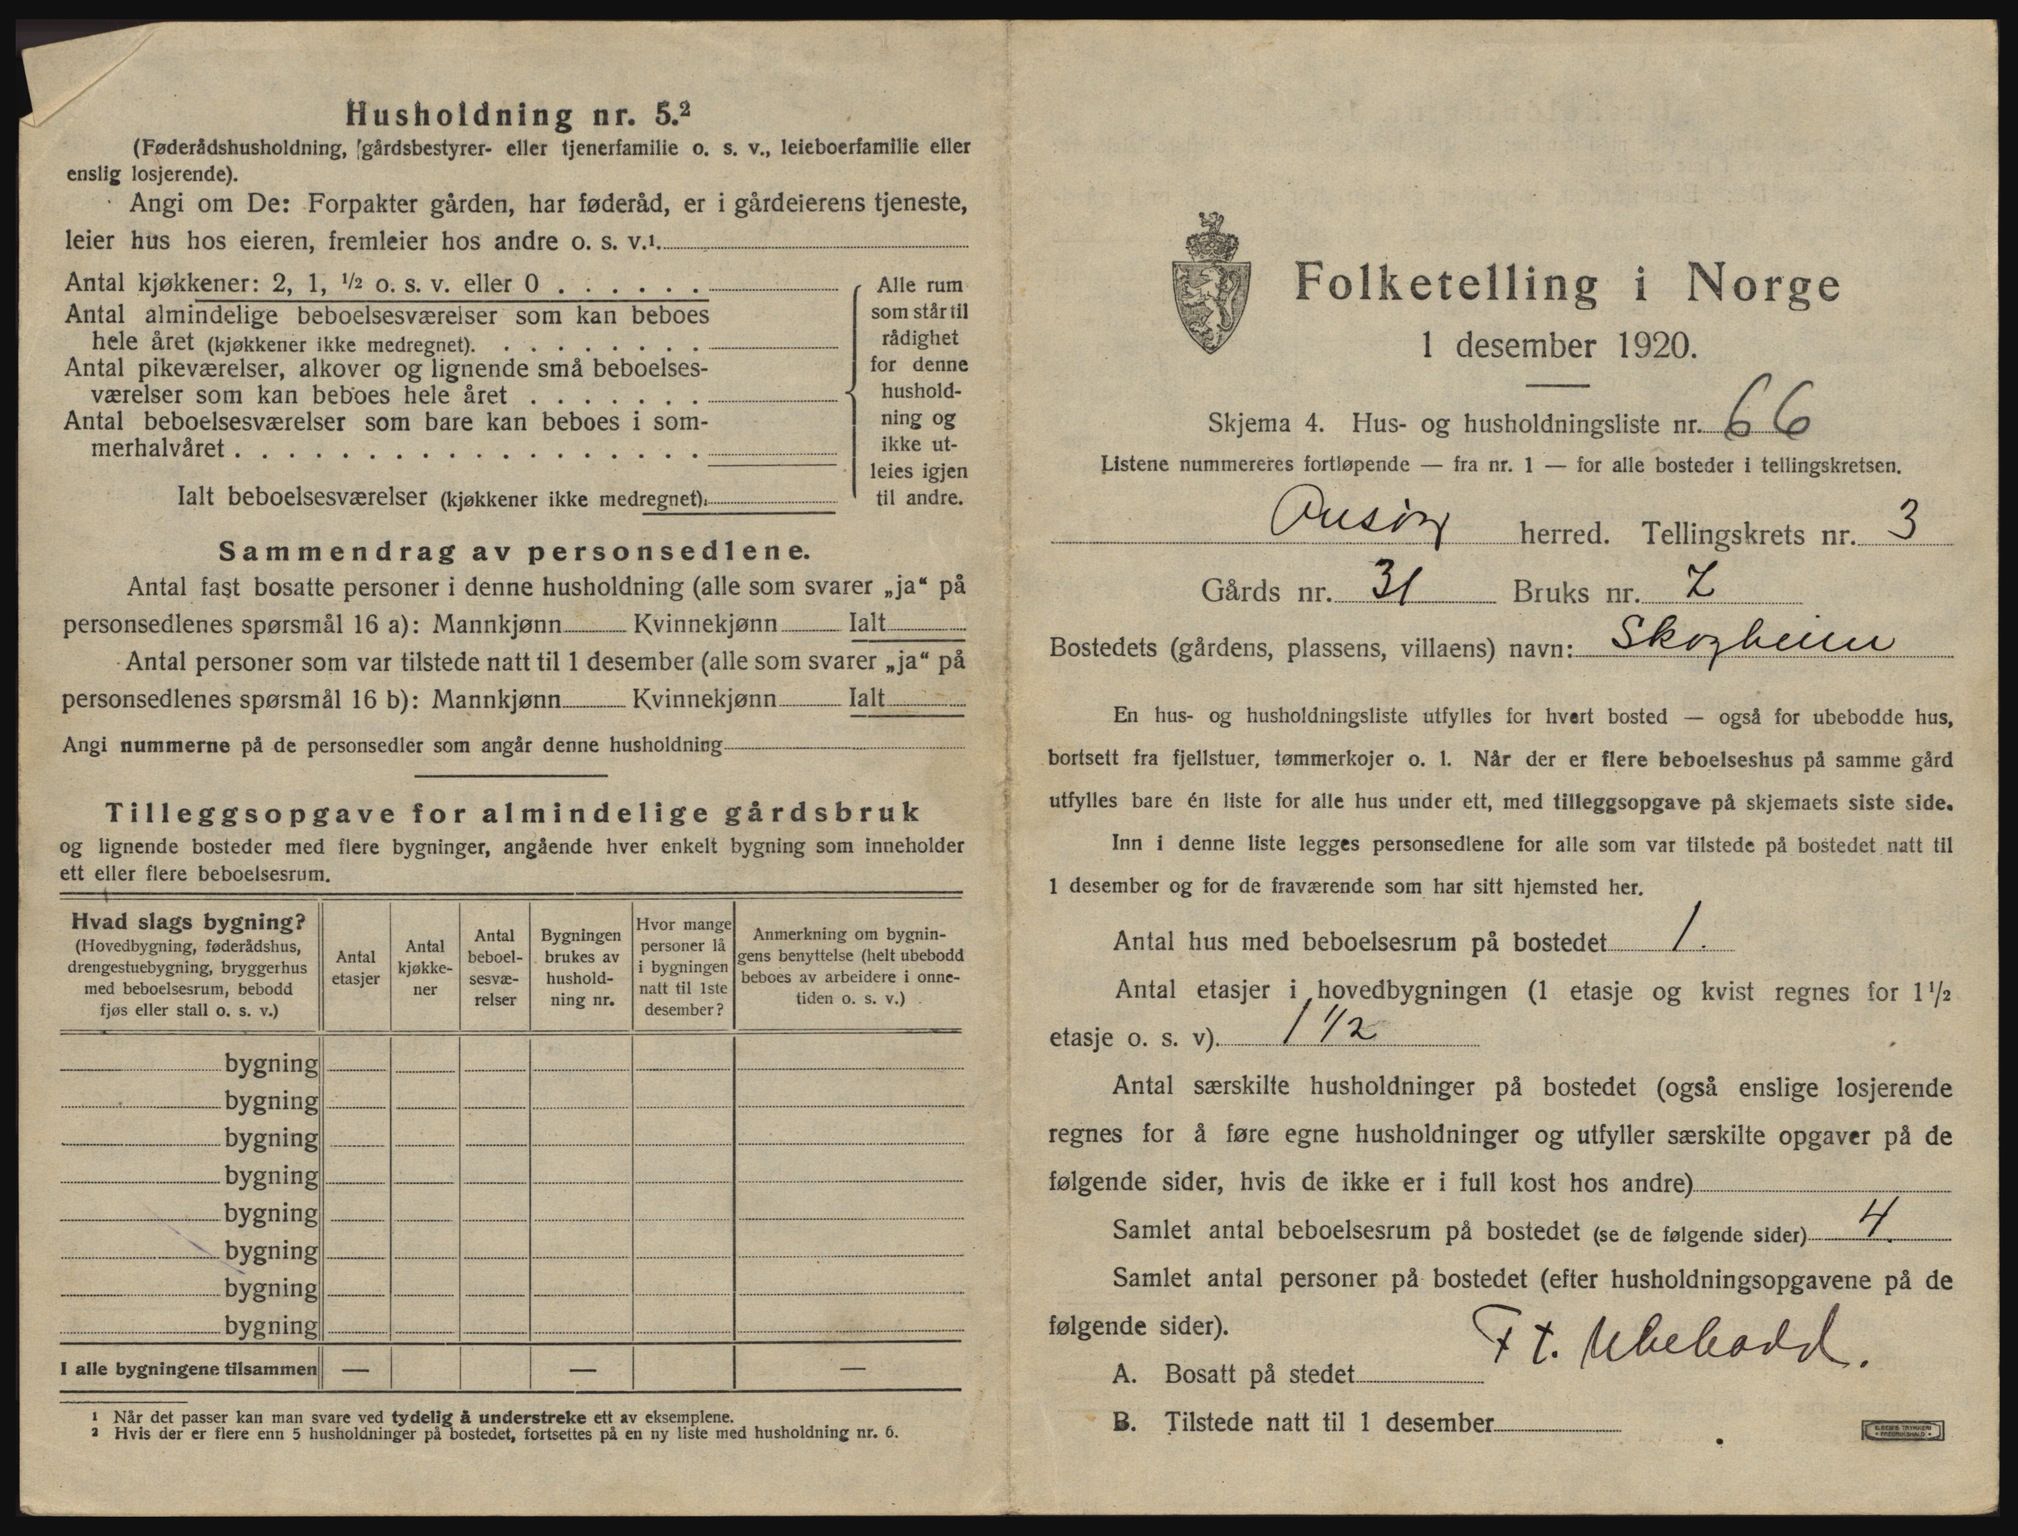 Husholdning nr. 5.²
(Føderådshusholdning, gårdsbestyrer- eller tjenerfamilie o. s. v., leieboerfamilie eller
enslig losjerende).
Angi om De: Forpakter gården, har føderåd, er i gårdeierens tjeneste,
leier hus hos eieren, fremleier hos andre o. s. v.¹.
Antal kjøkkener: 2, 1, ½ o. s. v. eller 0 . . . . . .
Antal almindelige beboelsesværelser som kan beboes
hele året (kjøkkener ikke medregnet). . . . . . . . .
Antal pikeværelser, alkover og lignende små beboelses-
værelser som kan beboes hele året . . . . . . .
Antal beboelsesværelser som bare kan beboes i som-
merhalvåret . . . . . . . . . . . . . . . . . .
Ialt beboelsesværelser (kjøkkener ikke medregnet).
Alle rum
som står til
rådighet
for denne
hushold-
ning og
ikke ut-
leies igjen
til andre.
Sammendrag av personsedlene.
Antal fast bosatte personer i denne husholdning (alle som svarer „ja“ på
personsedlenes spørsmål 16 a): Mannkjønn Kvinnekjønn Ialt
Antal personer som var tilstede natt til 1 desember (alle som svarer „ja“ på
personsedlenes spørsmål 16 b): Mannkjønn Kvinnekjønn Ialt
Angi nummerne på de personsedler som angår denne husholdning
Tilleggsopgave for almindelige gårdsbruk
og lignende bosteder med flere bygninger, angående hver enkelt bygning som inneholder
ett eller flere beboelsesrum.
Hvad slags bygning?
(Hovedbygning, føderådshus,
drengestuebygning, bryggerhus
med beboelsesrum, bebodd
fjøs eller stall o. s. v.)
Antal
etasjer
Antal
kjøkke-
ner
Antal
beboel-
sesvæ-
relser
Bygningen
brukes av
hushold-
ning nr.
Hvor mange
personer lå
i bygningen
natt til 1ste
desember?
Anmerkning om bygnin-
gens benyttelse (helt ubebodd
beboes av arbeidere i onne-
tiden o. s. v.)
bygning
bygning
bygning
bygning
bygning
bygning
bygning
bygning
I alle bygningene tilsammen — — —
¹ Når det passer kan man svare ved tydelig å understreke ett av eksemplene.
² Hvis der er flere enn 5 husholdninger på bostedet, fortsettes på en ny liste med husholdning nr. 6.
Folketelling i Norge
1 desember 1920.
Skjema 4. Hus- og husholdningsliste nr. 66
Listene nummereres fortløpende — fra nr. 1 — for alle bosteder i tellingskretsen.
Onsøy herred. Tellingskrets nr. 3
Gårds nr. 31 Bruks nr. 7
Bostedets (gårdens, plassens, villaens) navn: Skogheim
En hus- og husholdningsliste utfylles for hvert bosted — også for ubebodde hus,
bortsett fra fjellstuer, tømmerkojer o. l. Når der er flere beboelseshus på samme gård
utfylles bare én liste for alle hus under ett, med tilleggsopgave på skjemaets siste side.
Inn i denne liste legges personsedlene for alle som var tilstede på bostedet natt til
1 desember og for de fraværende som har sitt hjemsted her.
Antal hus med beboelsesrum på bostedet 1.
Antal etasjer i hovedbygningen (1 etasje og kvist regnes for 1½
etasje o. s. v). 1 ½
Antal særskilte husholdninger på bostedet (også enslige losjerende
regnes for å føre egne husholdninger og utfyller særskilte opgaver på de
følgende sider, hvis de ikke er i full kost hos andre)
Samlet antal beboelsesrum på bostedet (se de følgende sider) 4.
Samlet antal personer på bostedet (efter husholdningsopgavene på de
følgende sider).
F. t. Ubebodd.
A. Bosatt på stedet
B. Tilstede natt til 1 desember